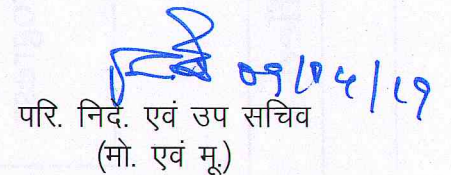 09/04/19
परि. निदे. एवं उप सचिव
(मो. एवं मू.)